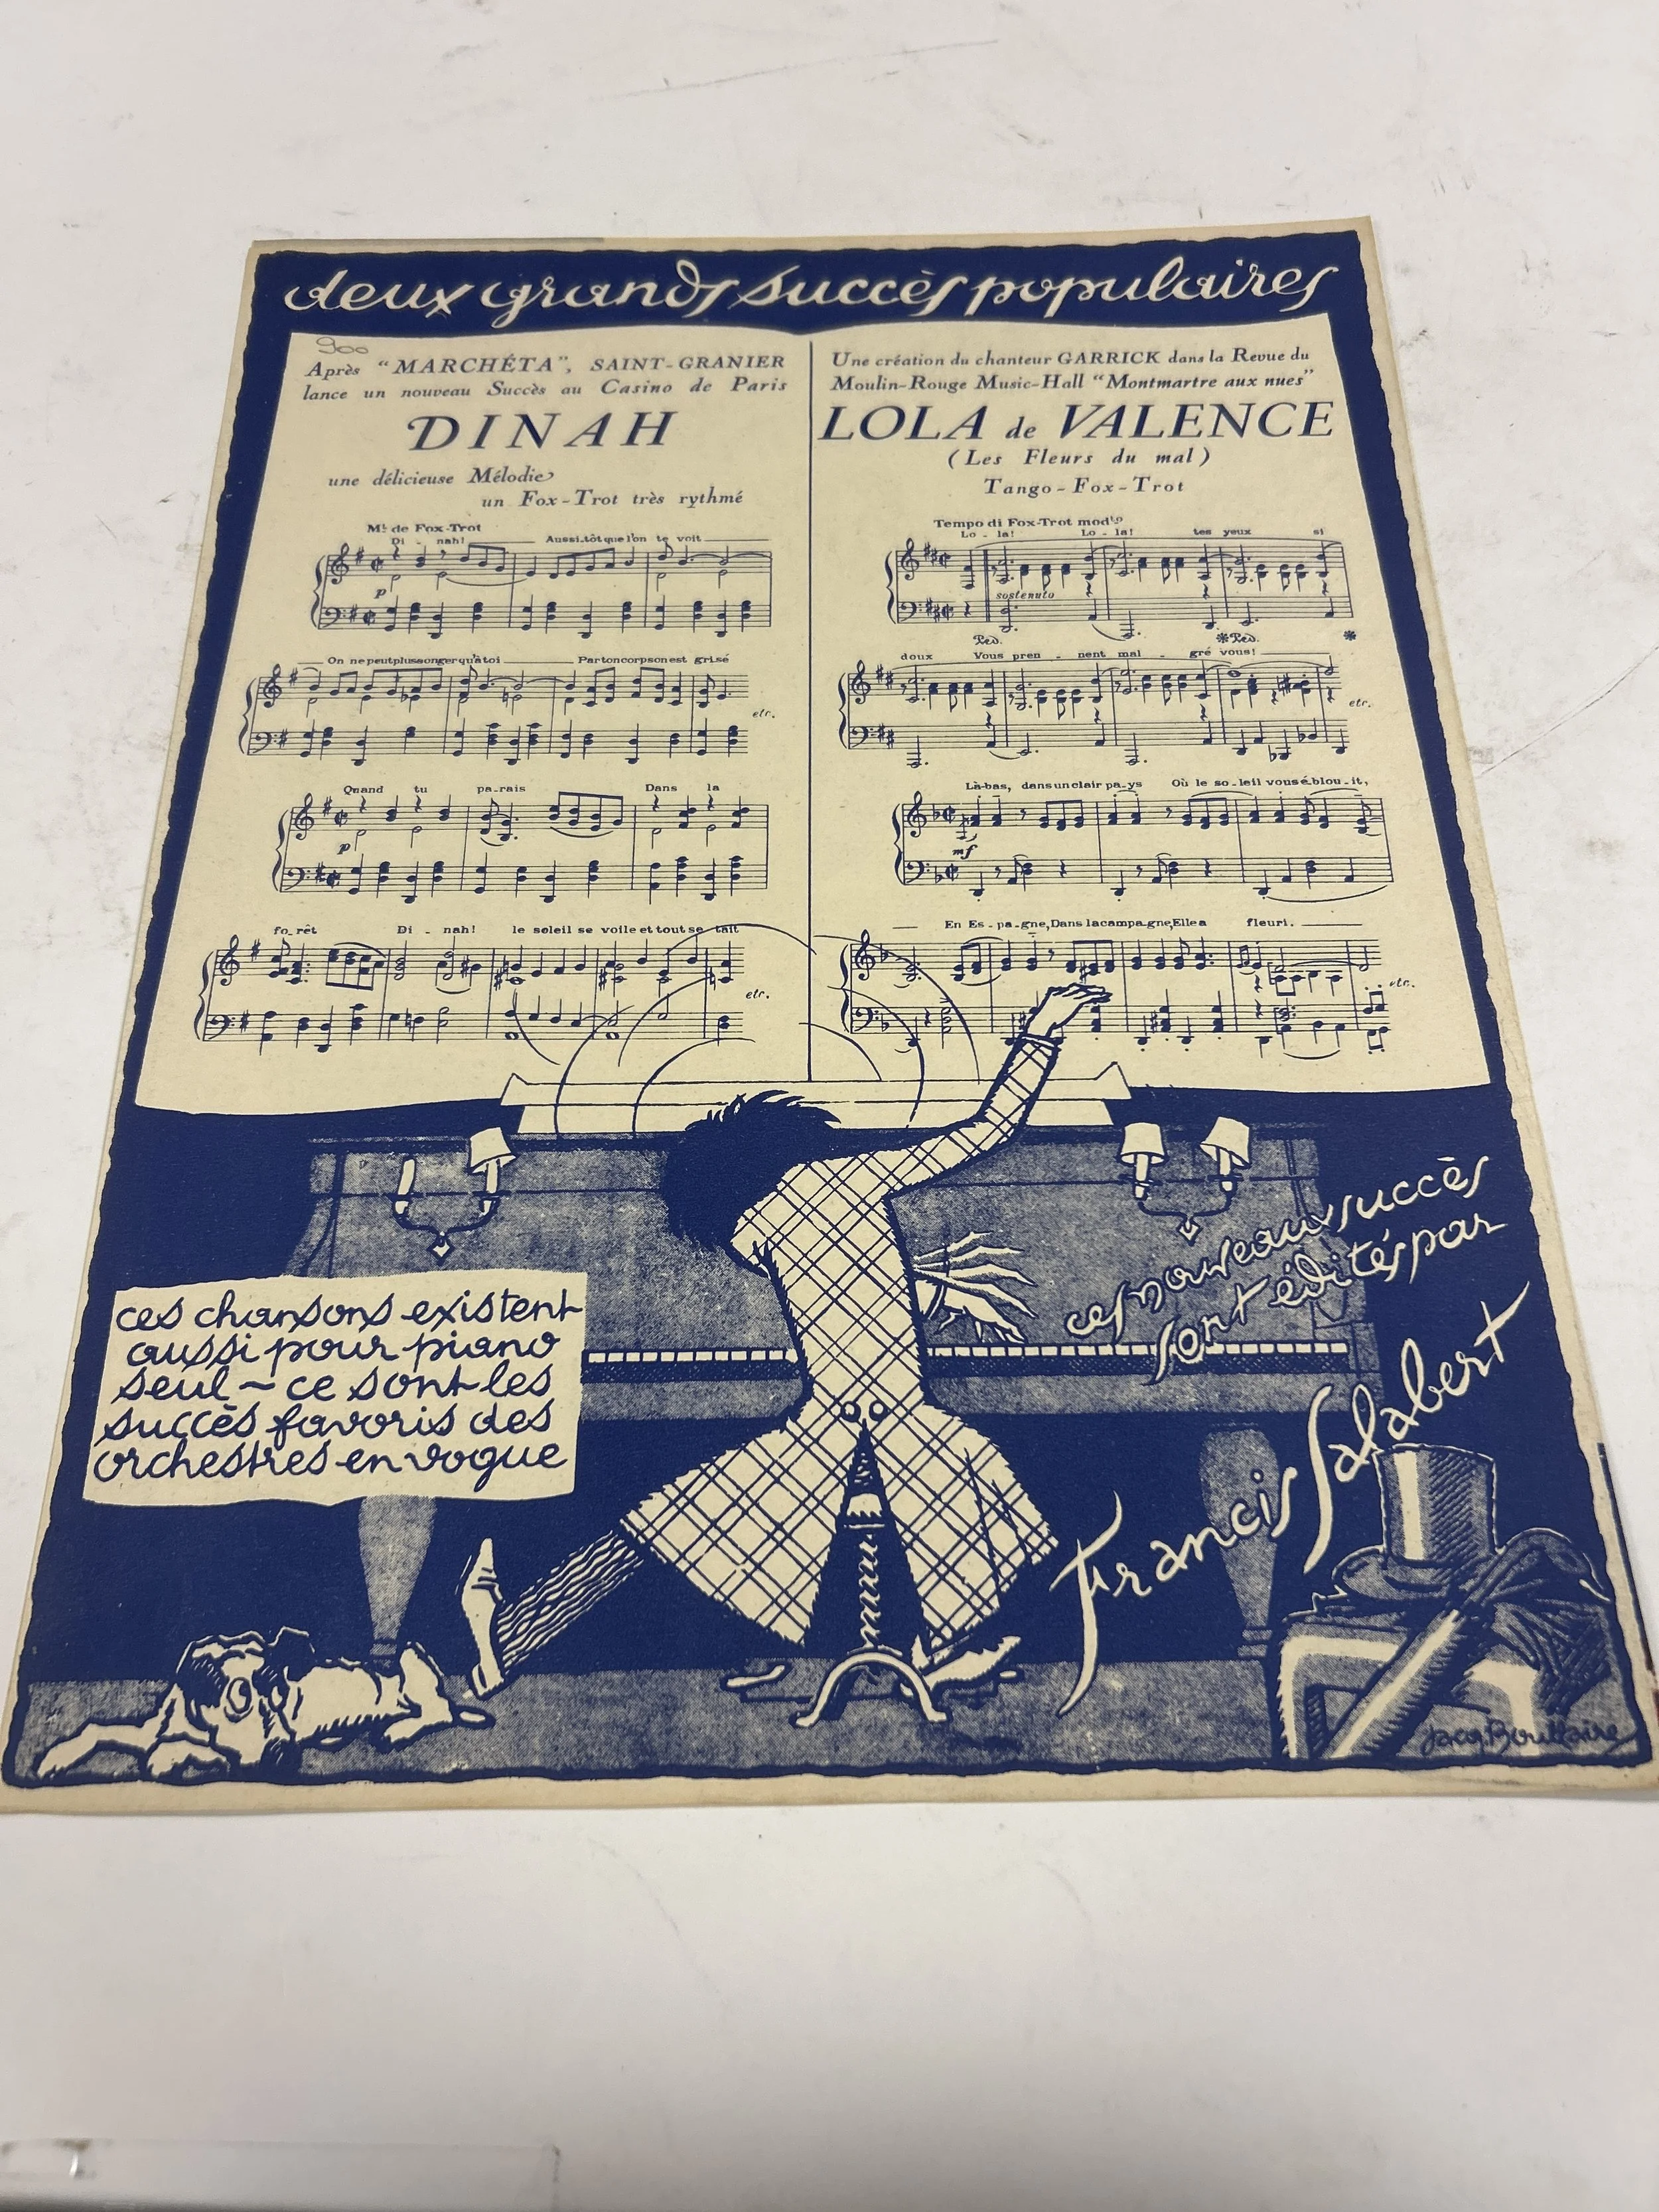 deux grands succès populaires
900
Après "MARCHÉTA", SAINT-GRANIER
lance un nouveau Succès au Casino de Paris
DINAH
une délicieuse Mélodie
un Fox-Trot très rythmé
Mt de Fox-Trot
Di - nah! Aussi.tôt que l'on te voit
p
On ne peut plus songer qu'à toi Par ton corps on est grisé
etc.
Quand tu pa-rais Dans la
p
fo-rêt Di - nah! le soleil se voile et tout se tait
etc.
Une création du chanteur GARRICK dans la Revue du
Moulin-Rouge Music-Hall "Montmartre aux nues"
LOLA de VALENCE
(Les Fleurs du mal)
Tango-Fox-Trot
Tempo di Fox-Trot modto
Lo - la! Lo - la! tes yeux si
sostenuto
Ped. * Ped. *
doux Vous pren - nent mal - gré vous!
etc.
Là-bas, dans un clair pa-ys Où le so-leil vous é-blou-it,
mf
En Es-pa-gne, Dans la campa-gne, Elle a fleuri.
etc.
ces nouveaux succès
sont édités par
Francis Salabert
ces chansons existent
aussi pour piano
seul ~ ce sont les
succès favoris des
orchestres en vogue
Jacq. Boullaire